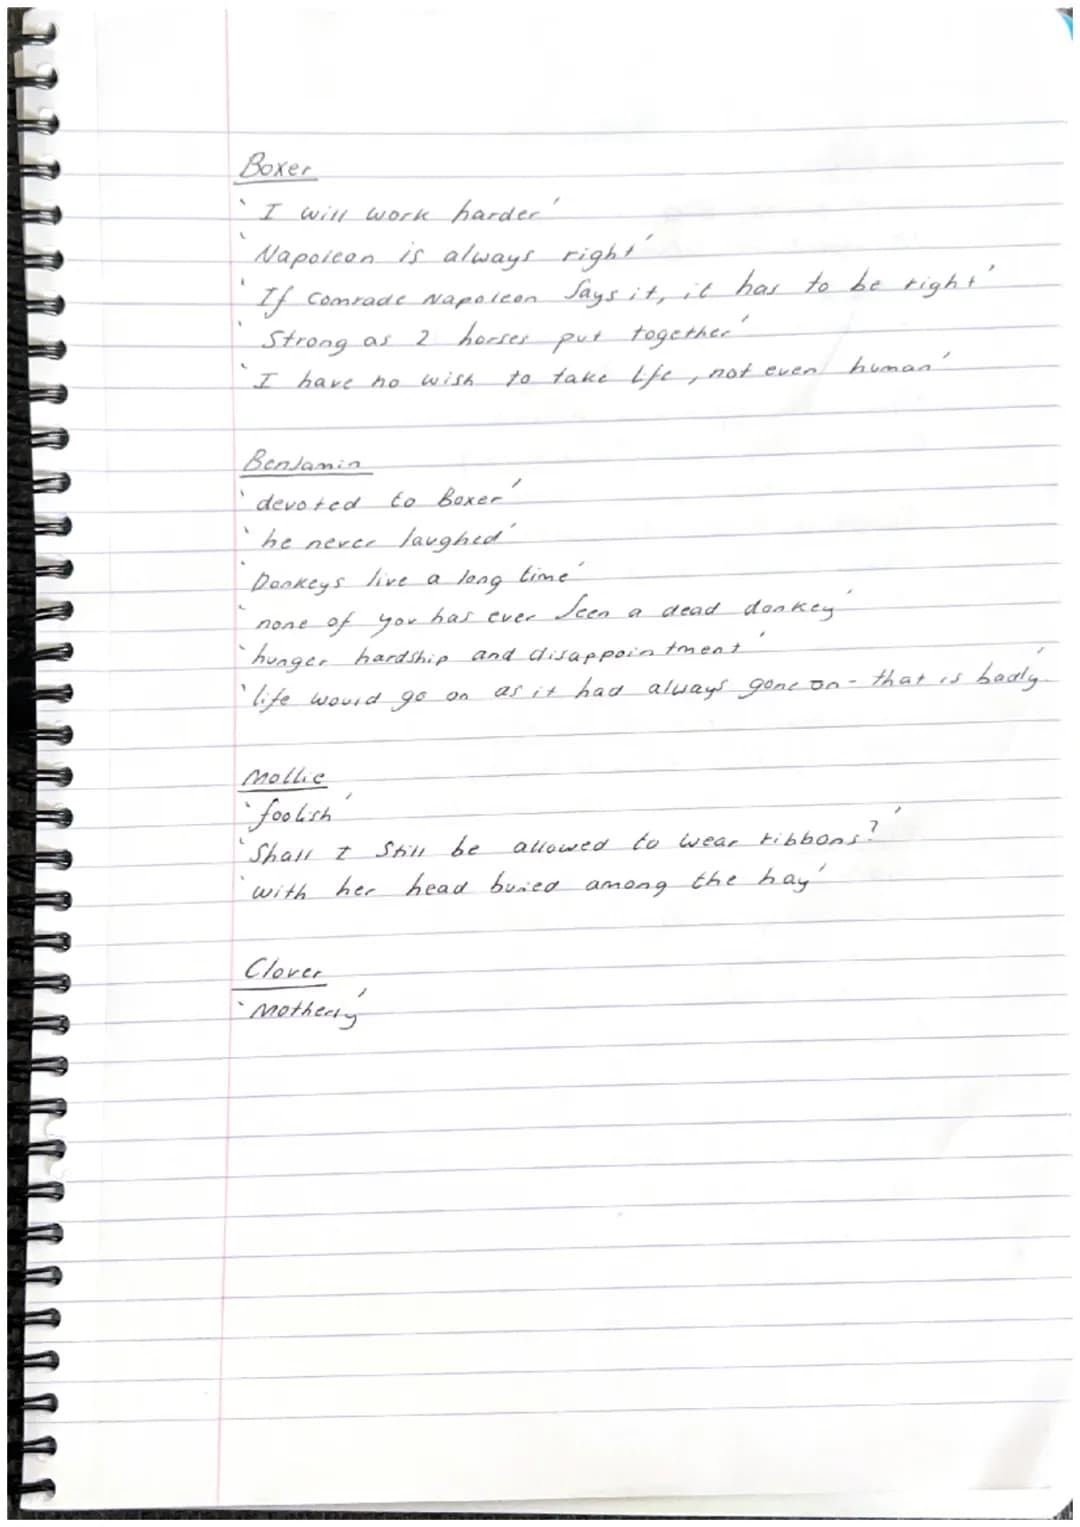 Boxer
'I will work harder'
'Napoleon is always right'
'If Comrade Napoleon says it, it has to be right'
'Strong as 2 horses put together'
'I have no wish to take life, not even human'
Benjamin
'devoted to Boxer'
'he never laughed'
'Donkeys live a long time'
'none of you has ever seen a dead donkey'
'hunger hardship and disappointment'
'life would go on as it had always gone on - that is badly'
Mollie
'foolish'
'Shall I still be allowed to wear ribbons?'
'with her head buried among the hay'
Clover
'Motherly'